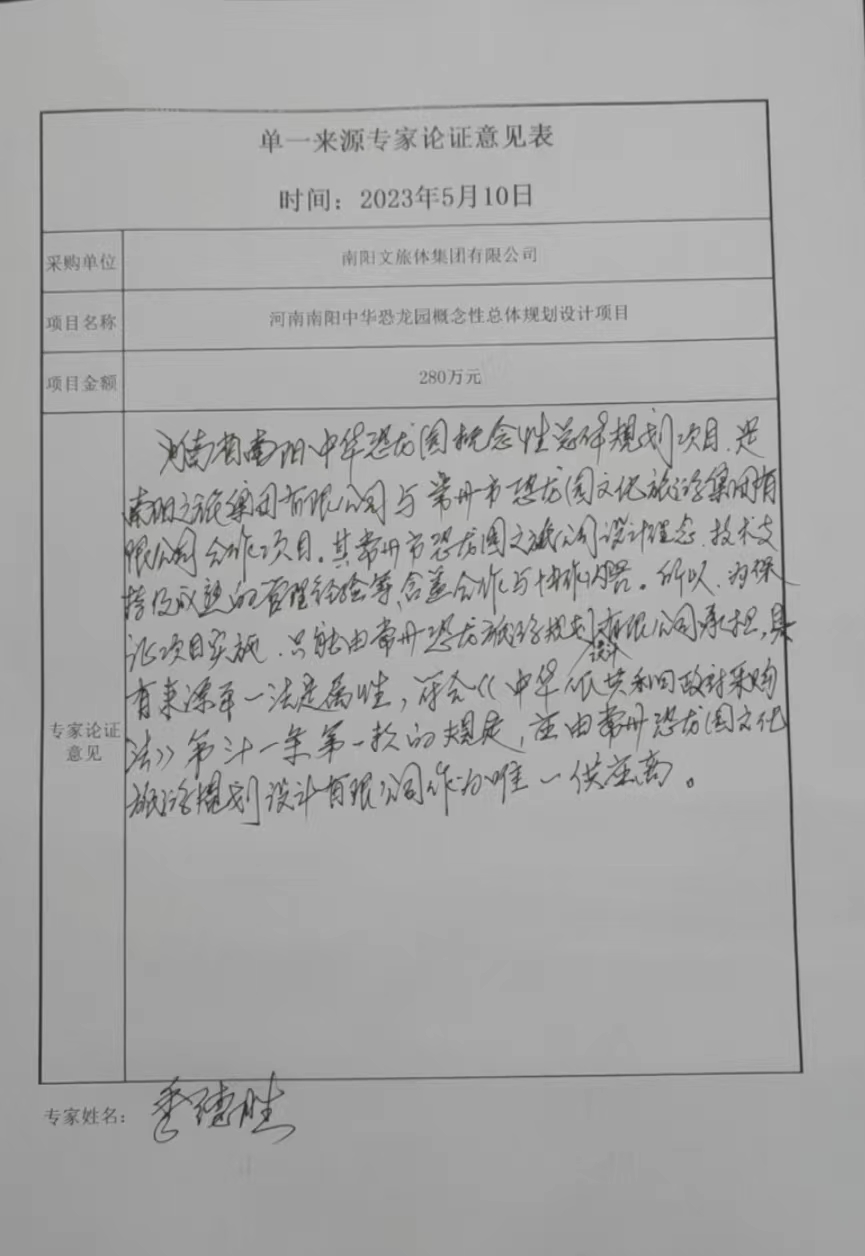 单一来源专家论证意见表
时间：2023年5月10日
采购单位
南阳文旅体集团有限公司
项目名称
河南南阳中华恐龙园概念性总体规划设计项目
项目金额
280万元
专家论证
意见
河南省南阳中华恐龙园概念性总体规划项目，是
南阳文旅集团有限公司与常州市恐龙园文化旅游集团有
限公司合作项目。其常州市恐龙园文旅公司设计理念、技术支
持及成熟的管理经验等，含盖合作与协作内容。所以，为保
证项目实施，只能由常州恐龙旅游规划设计有限公司承担，具
有来源单一法定属性，符合《中华人民共和国政府采购
法》第卅一条第一款的规定，应由常州恐龙园文化
旅游规划设计有限公司作为唯一供应商。
专家姓名：
德胜